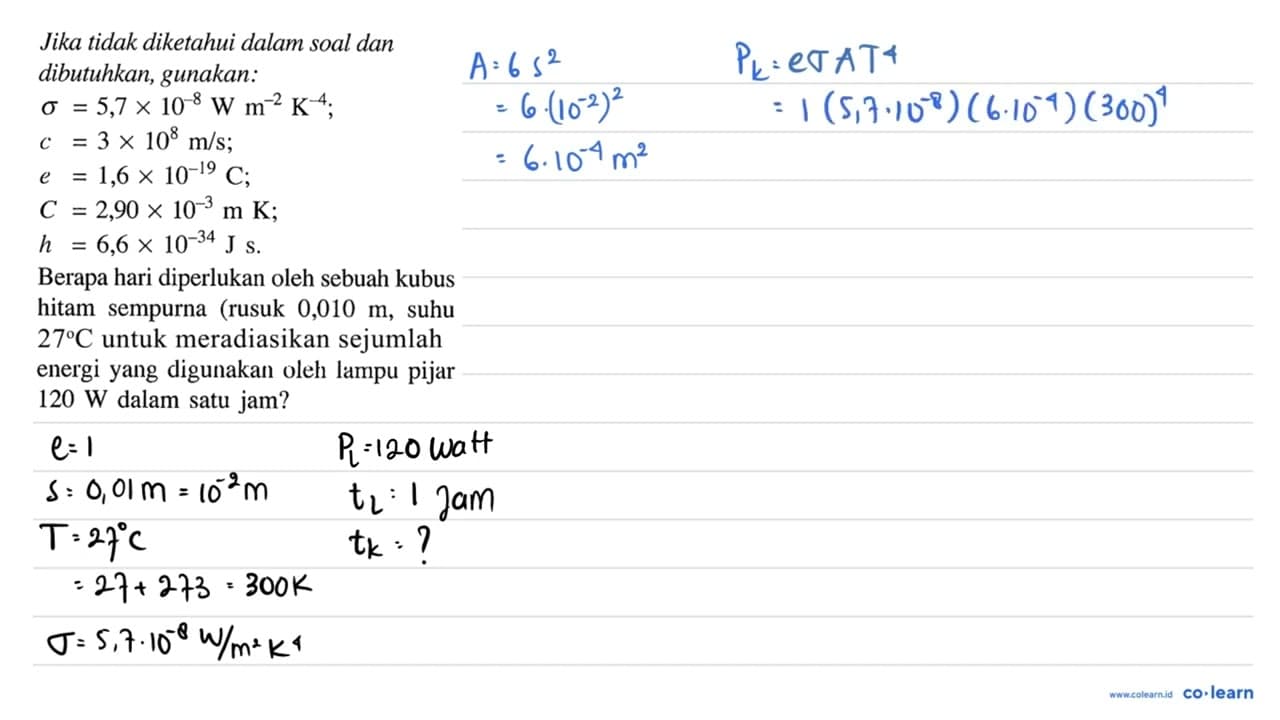 Jika tidak diketahui dalam soal dan
dibutuhkan, gunakan:
σ = 5,7 × 10⁻⁸ W m⁻² K⁻⁴;
c = 3 × 10⁸ m/s;
e = 1,6 × 10⁻¹⁹ C;
C = 2,90 × 10⁻³ m K;
h = 6,6 × 10⁻³⁴ J s.
Berapa hari diperlukan oleh sebuah kubus
hitam sempurna (rusuk 0,010 m, suhu
27°C untuk meradiasikan sejumlah
energi yang digunakan oleh lampu pijar
120 W dalam satu jam?
e = 1
s = 0,01 m = 10⁻² m
T = 27°C
= 27 + 273 = 300 K
σ = 5,7 · 10⁻⁸ W/m² K⁴
P_L = 120 watt
t_L = 1 Jam
t_K = ?
A = 6 s²
= 6 · (10⁻²)²
= 6 · 10⁻⁴ m²
P_k = eσAT⁴
= 1 (5,7 · 10⁻⁸) (6 · 10⁻⁴) (300)⁴
www.colearn.id co·learn